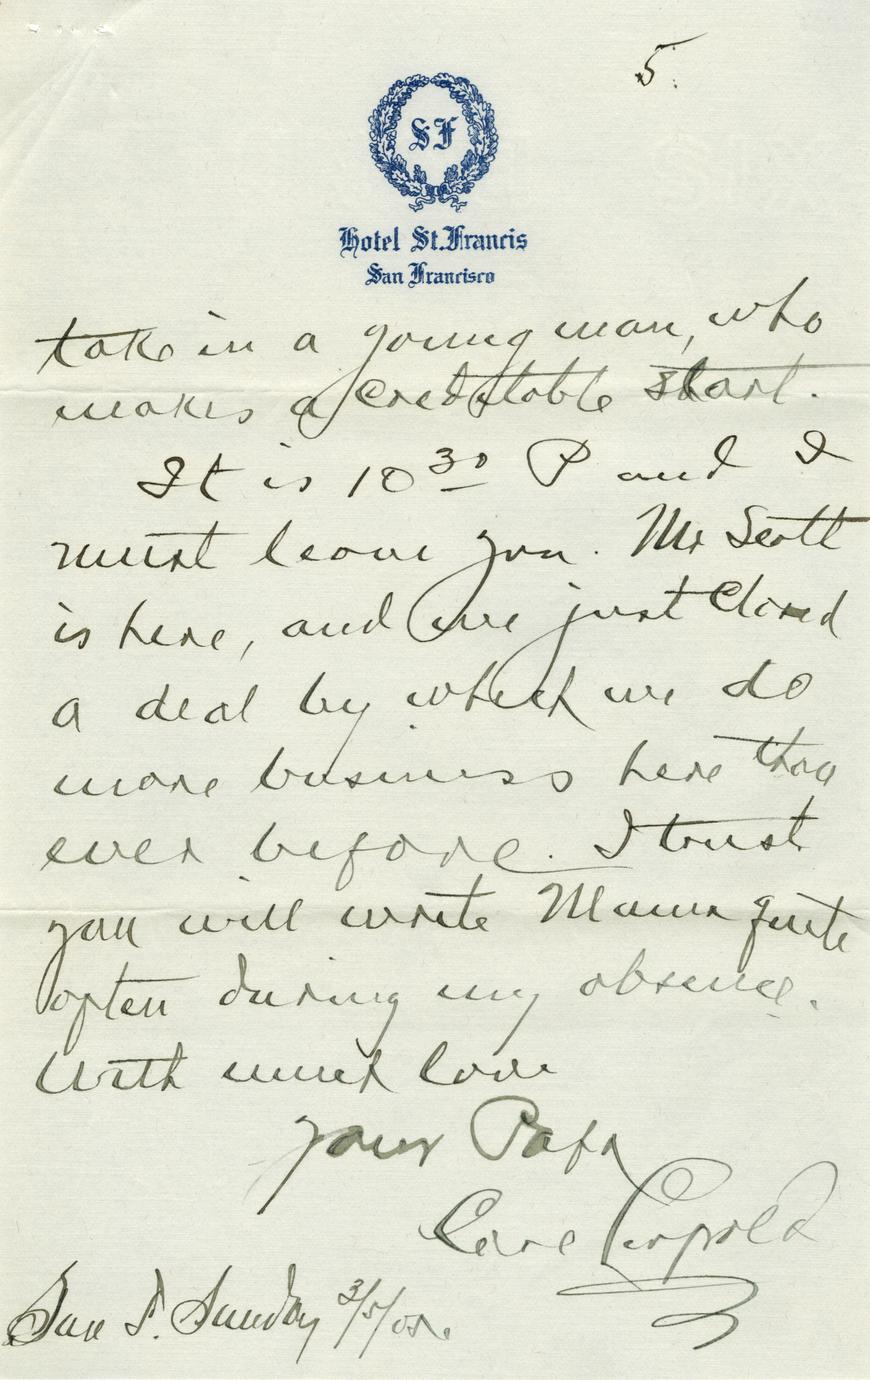 5.
SF
Hotel St. Francis
San Francisco
take in a young man, who
makes a creditable start.
It is 10 30 P and I
must leave you. Mr Scott
is here, and we just closed
a deal by which we do
more business here than
ever before. I trust
you will write Mama quite
often during my absence.
With much love
your Papa
Carl Leopold
San F. Sunday 3/5/05.